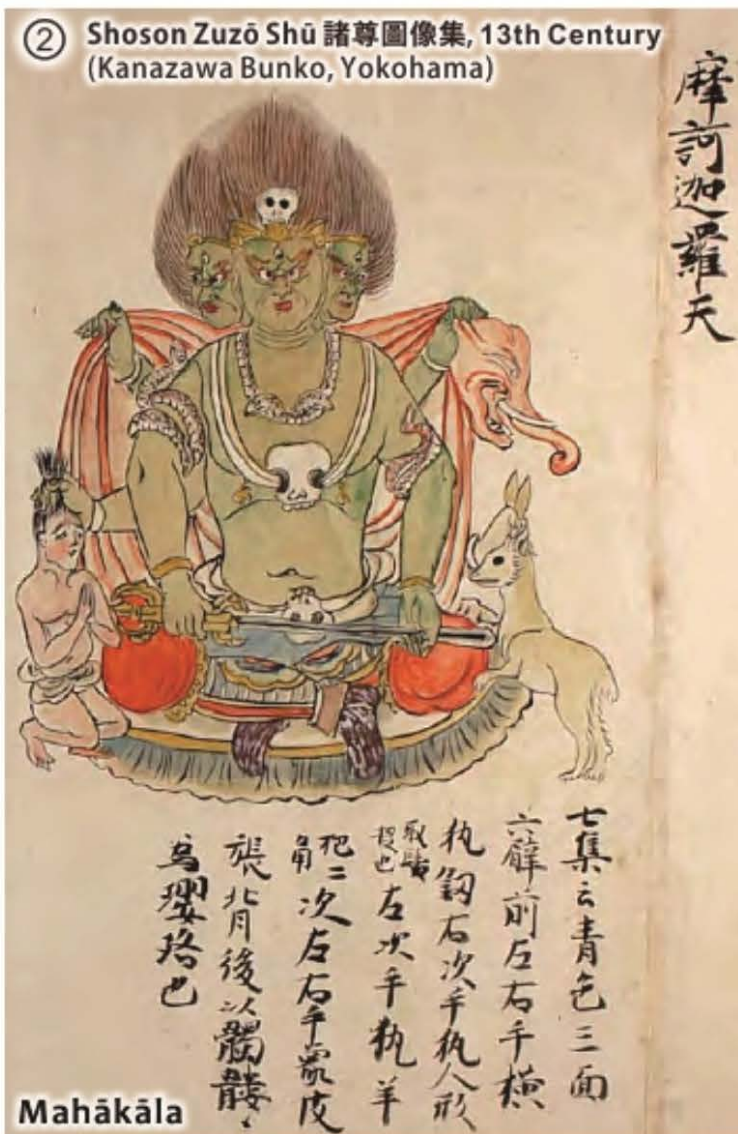 ② Shoson Zuzō Shū 諸尊圖像集, 13th Century
(Kanazawa Bunko, Yokohama)
摩訶迦羅天
七集云青色三面
六臂前左右手横
執釼右次手執人形
左次手執羊
二次左右手象皮
張背後以髑髏
為瓔珞也
Mahākāla